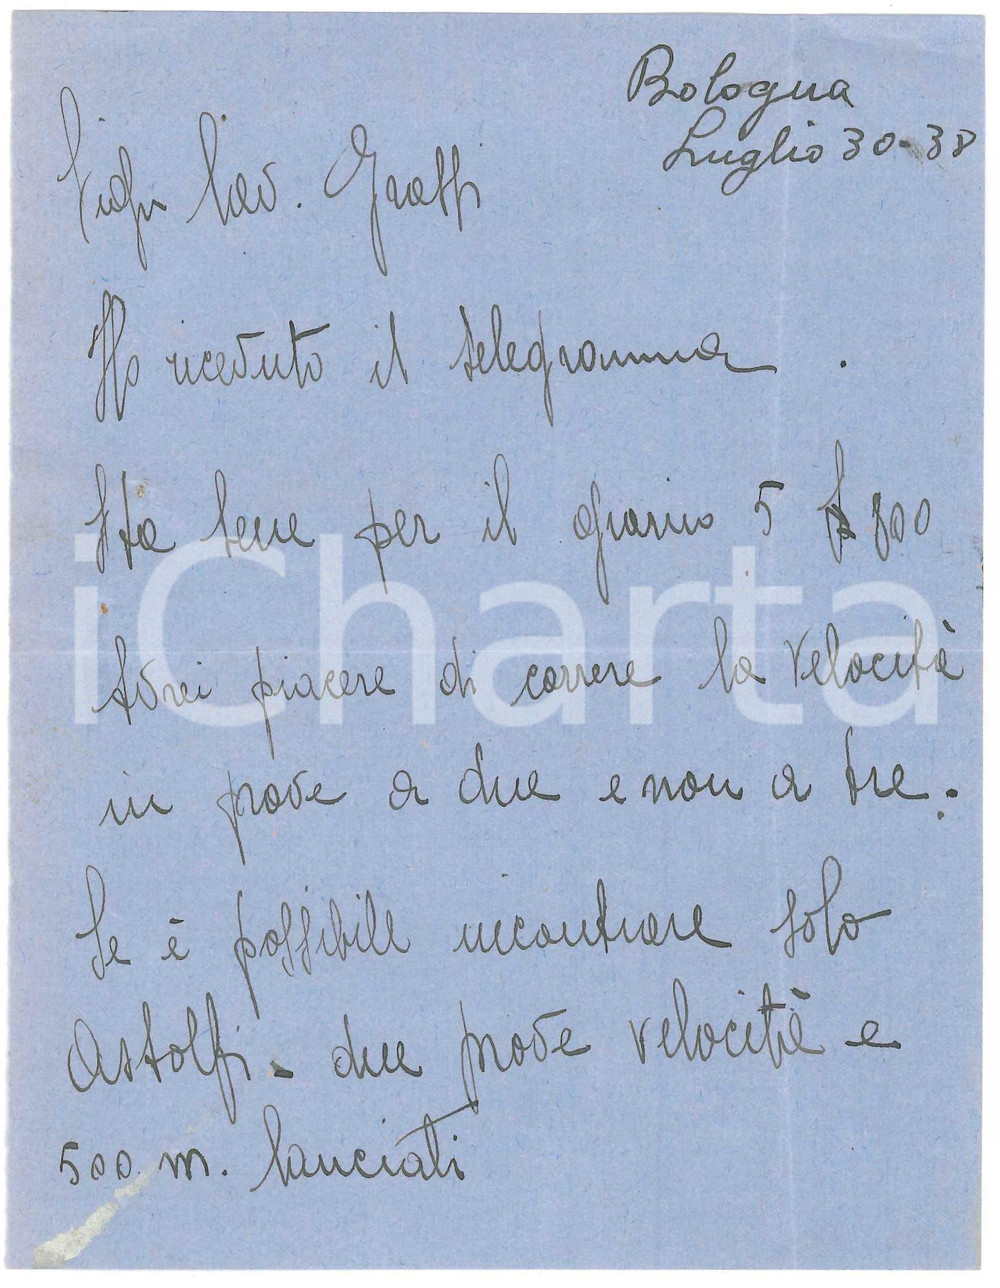 Bologna
Luglio 30-38
Sigr Cav. Graffi
Ho ricevuto il telegramma .
Sta bene per il giorno 5 £ 800
Avrei piacere di correre la velocità
in prove a due e non a tre.
Se è possibile incontrare solo
Astolfi - due prove velocità e
500 m. lanciati
iCharta